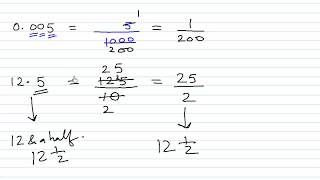 0.005 = 5/1000 1 200 = 1/200
12.5 = 125/10 25 2 = 25/2
12 & a half. 12 1/2
12 1/2